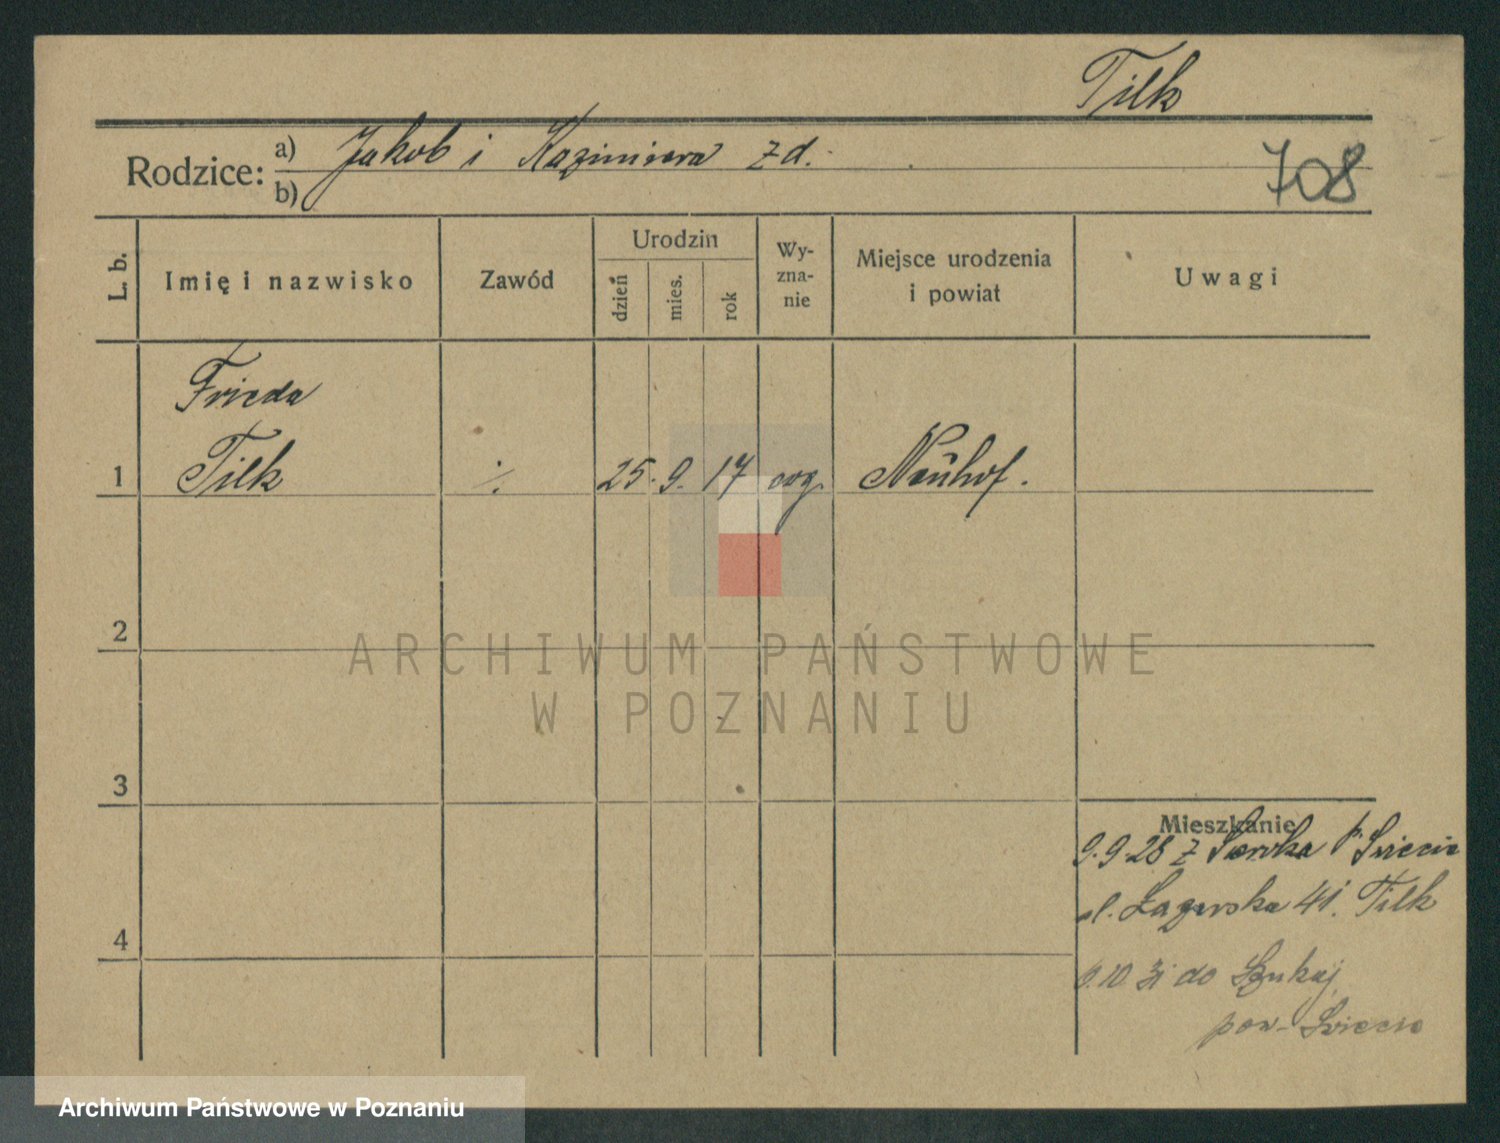 Tilk
Rodzice: a) Jakob i Kazimiera z d.
b)
708
L. b.
Imię i nazwisko
Zawód
Urodzin
dzień
mies.
rok
Wy-
zna-
nie
Miejsce urodzenia
i powiat
Uwagi
Frieda
1 Tilk ./. 25. 9. 17 ewg. Neŭhof.
2
ARCHIWUM PAŃSTWOWE
W POZNANIU
3
Mieszkanie
9.9.28 z p. Świecie
ul. Łazarska 41. Tilk
4
10 31 do
pow. Świecie
Archiwum Państwowe w Poznaniu